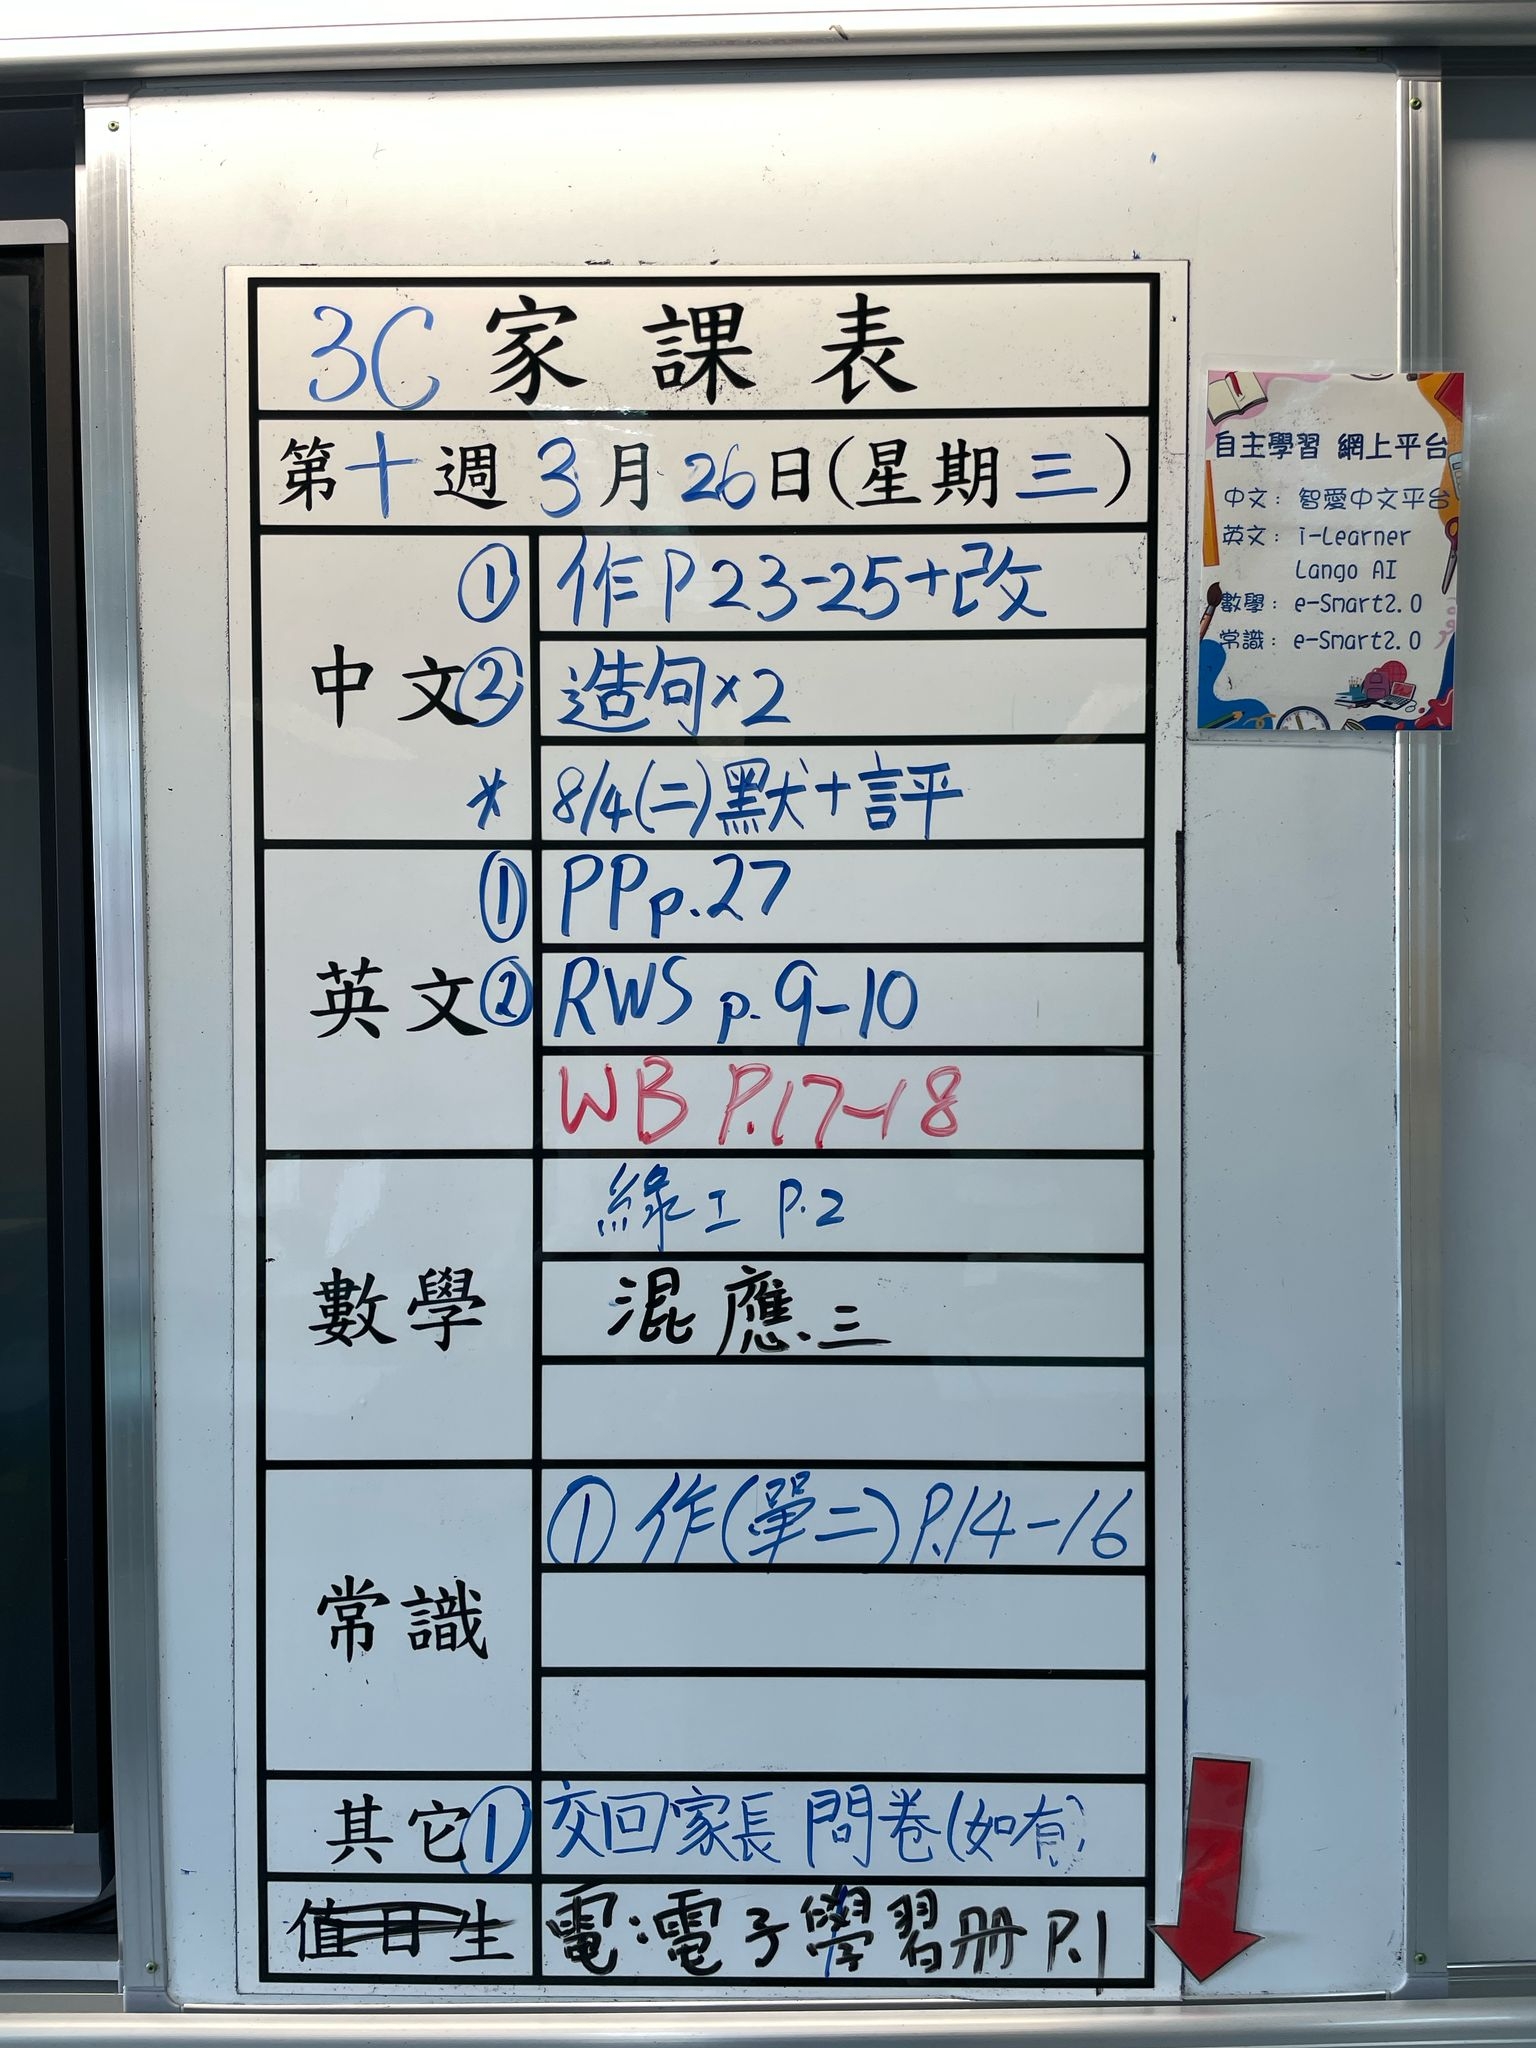 3C 家課表
第十週 3月26日(星期三)
中文
① 作P23-25+改
② 造句×2
* 8/4(二)默+評
英文
① PP p.27
② RWS p.9-10
WB P.17-18
數學
綠工 P.2
混應.三
常識
① 作(單二)P.14-16
其它
① 交回家長問卷(如有)
值日生
電:電子學習冊 P.1
自主學習 網上平台
中文: 智愛中文平台
英文: i-Learner
Lango AI
數學: e-Smart2.0
常識: e-Smart2.0